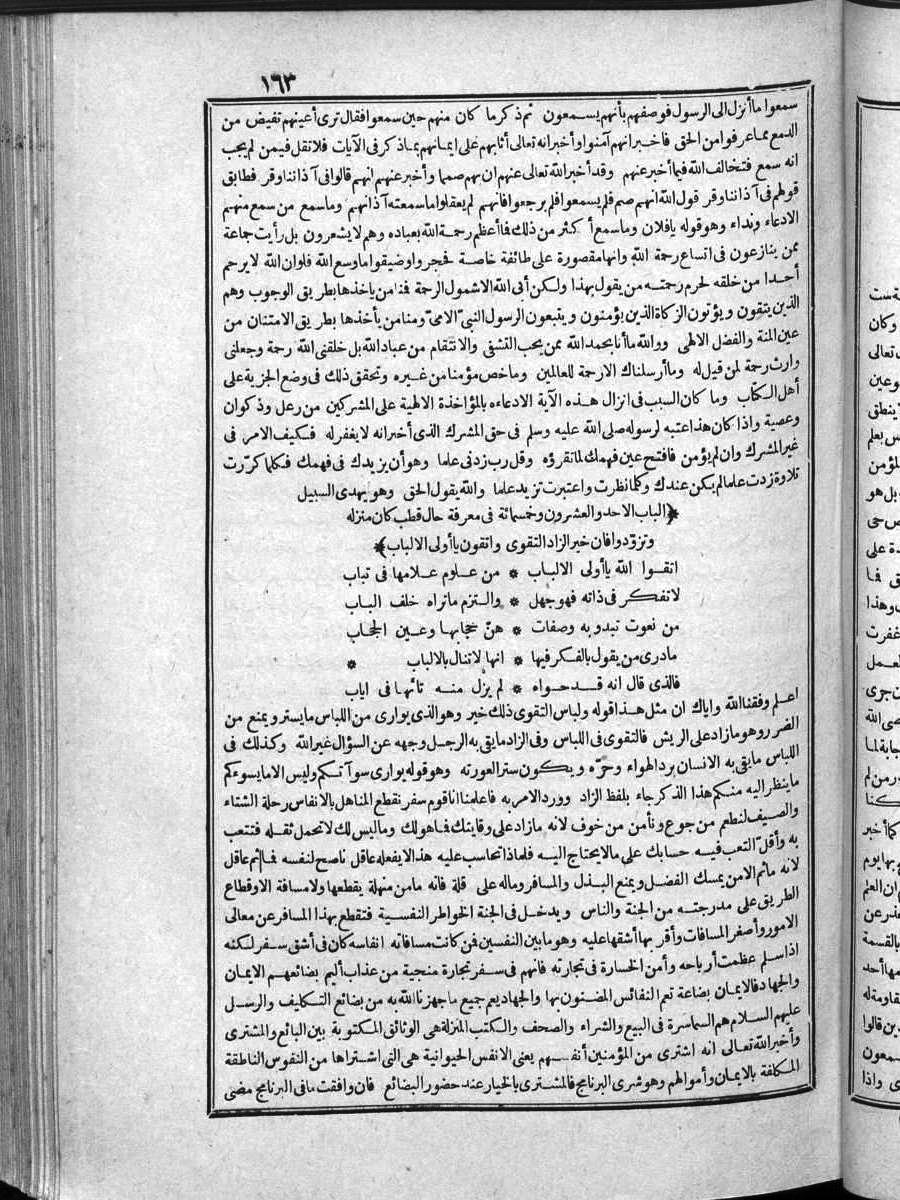 ١٦٣
سمعوا ما أنزل الى الرسول فوصفهم بأنهم يسمعون ثم ذكر ما كان منهم حين سمعوا فقال ترى أعينهم تفيض من
الدمع مما عرفوا من الحق فاخبر انهم آمنوا وأخبر انه تعالى أثابهم على ايمانهم بما ذكر فى الآيات فلا تقل فيمن لم يجب
انه سمع فتخالف الله فيما أخبر عنهم وقد أخبر الله تعالى عنهم ان بهم صمما وأخبر عنهم انهم قالوا فى آذاننا وقر فطابق
قولهم فى آذاننا وقر قول الله انهم صم فلم يسمعوا فلم يرجعوا فانهم لم يعقلوا ما سمعته آذانهم وما سمع من سمع منهم
الادعاء ونداء وهو قوله يافلان وما سمع أكثر من ذلك فما أعظم رحمة الله بعباده وهم لا يشعرون بل رأيت جماعة
ممن ينازعون فى اتساع رحمة الله وانها مقصورة على طائفة خاصة فحجروا وضيقوا ما وسع الله فلو ان الله لا يرحم
أحدا من خلقه لحرم رحمته من يقول بهذا ولكن أبى الله الاشمول الرحمة فمنا من ياخذها بطريق الوجوب وهم
الذين يتقون ويؤتون الزكاة الذين يؤمنون ويتبعون الرسول النبىّ الامىّ ومنا من يأخذها بطريق الامتنان من
عين المنة والفضل الالهى ووالله ما أنا بحمد الله ممن يحب التشفى والانتقام من عباد الله بل خلقنى الله رحمة وجعلنى
وارث رحمة لمن قيل له وما أرسلناك الارحمة للعالمين وما خص مؤمنا من غيره وتحقق ذلك فى وضع الجزية على
أهل الكتاب وما كان السبب فى انزال هذه الآية الادعاءه بالمؤاخذة الالهية على المشركين من رعل وذكوان
وعصية واذا كان هذا عتبه لرسوله صلى الله عليه وسلم فى حق المشرك الذى أخبر انه لا يغفر له فكيف الامر فى
غير المشرك وان لم يؤمن فافتح عين فهمك لما تقرؤه وقل رب زدنى علما وهو أن يزيدك فى فهمك فكلما كرّرت
تلاوة زدت علما لم يكن عندك وكلما نظرت واعتبرت تزيد علما والله يقول الحق وهو يهدى السبيل
﴿الباب الاحد والعشرون وخمسمائة فى معرفة حال قطب كان منزله
وتزوّدوا فان خير الزاد التقوى واتقون ياأولى الالباب﴾
اتقوا الله ياأولى الالباب * من علوم علامها فى تباب
لا تفكر فى ذاته فهو جهل * والتزم ما تراه خلف الباب
من نعوت تبدو به وصفات * هنّ حجابها وعين الحجاب
ما درى من يقول بالفكر فيها * انها لا تنال بالالباب *
فالذى قال انه قد حواه * لم يزل منه تائها فى اياب
اعلم وفقنا الله واياك ان مثل هذا قوله ولباس التقوى ذلك خير وهو الذى يوارى من اللباس ما يستر ويمنع من
الضرر وهو ما زاد على الريش فالتقوى فى اللباس وفى الزاد ما يقى به الرجل وجهه عن السؤال غير الله وكذلك فى
اللباس ما يقى به الانسان برد الهواء وحرّه ويكون ستر العورته وهو قوله يوارى سوآتكم وليس الا ما يسوءكم
ما ينظر اليه منكم هذا الذكر جاء بلفظ الزاد وورد الامر به فاعلمنا انا قوم سفر نقطع المناهل بالانفاس رحلة الشتاء
والصيف لنطعم من جوع ونأمن من خوف لانه ما زاد على وقايتك فما هو لك وما ليس لك لا تحمل ثقله فتتعب
به وأقلّ التعب فيه حسابك على ما لا يحتاج اليه فلماذا تحاسب عليه هذا لا يفعله عاقل ناصح لنفسه فما ثم عاقل
لانه ما ثم الا من يمسك الفضل ويمنع البذل والمسافر وماله على قلة فانه ما من منهلة يقطعها ولا مسافة الا وقطاع
الطريق على مدرجته من الجنة والناس ويدخل فى الجنة الخواطر النفسية فتقطع بهذا المسافر عن معالى
الامور وأصغر المسافات وأقربها أشقها عليه وهو ما بين النفسين فمن كانت مسافاته انفاسه كان فى أشق سفر لكنه
اذا سلم عظمت أرباحه وأمن الخسارة فى تجارته فانهم فى سفر تجارة منجية من عذاب أليم بضائعهم الايمان
والجهاد فالايمان بضاعة تعم النفائس المضنون بها والجهاد يعم جميع ما جهزنا الله به من بضائع التكليف والرسل
عليهم السلام هم السماسرة فى البيع والشراء والصحف والكتب المنزلة هى الوثائق المكتوبة بين البائع والمشترى
وأخبر الله تعالى انه اشترى من المؤمنين أنفسهم يعنى الانفس الحيوانية هى التى اشتراها من النفوس الناطقة
المكلفة بالايمان وأموالهم وهو شرى البرنامج فالمشترى بالخيار عند حضور البضائع فان وافقت ما فى البرنامج مضى